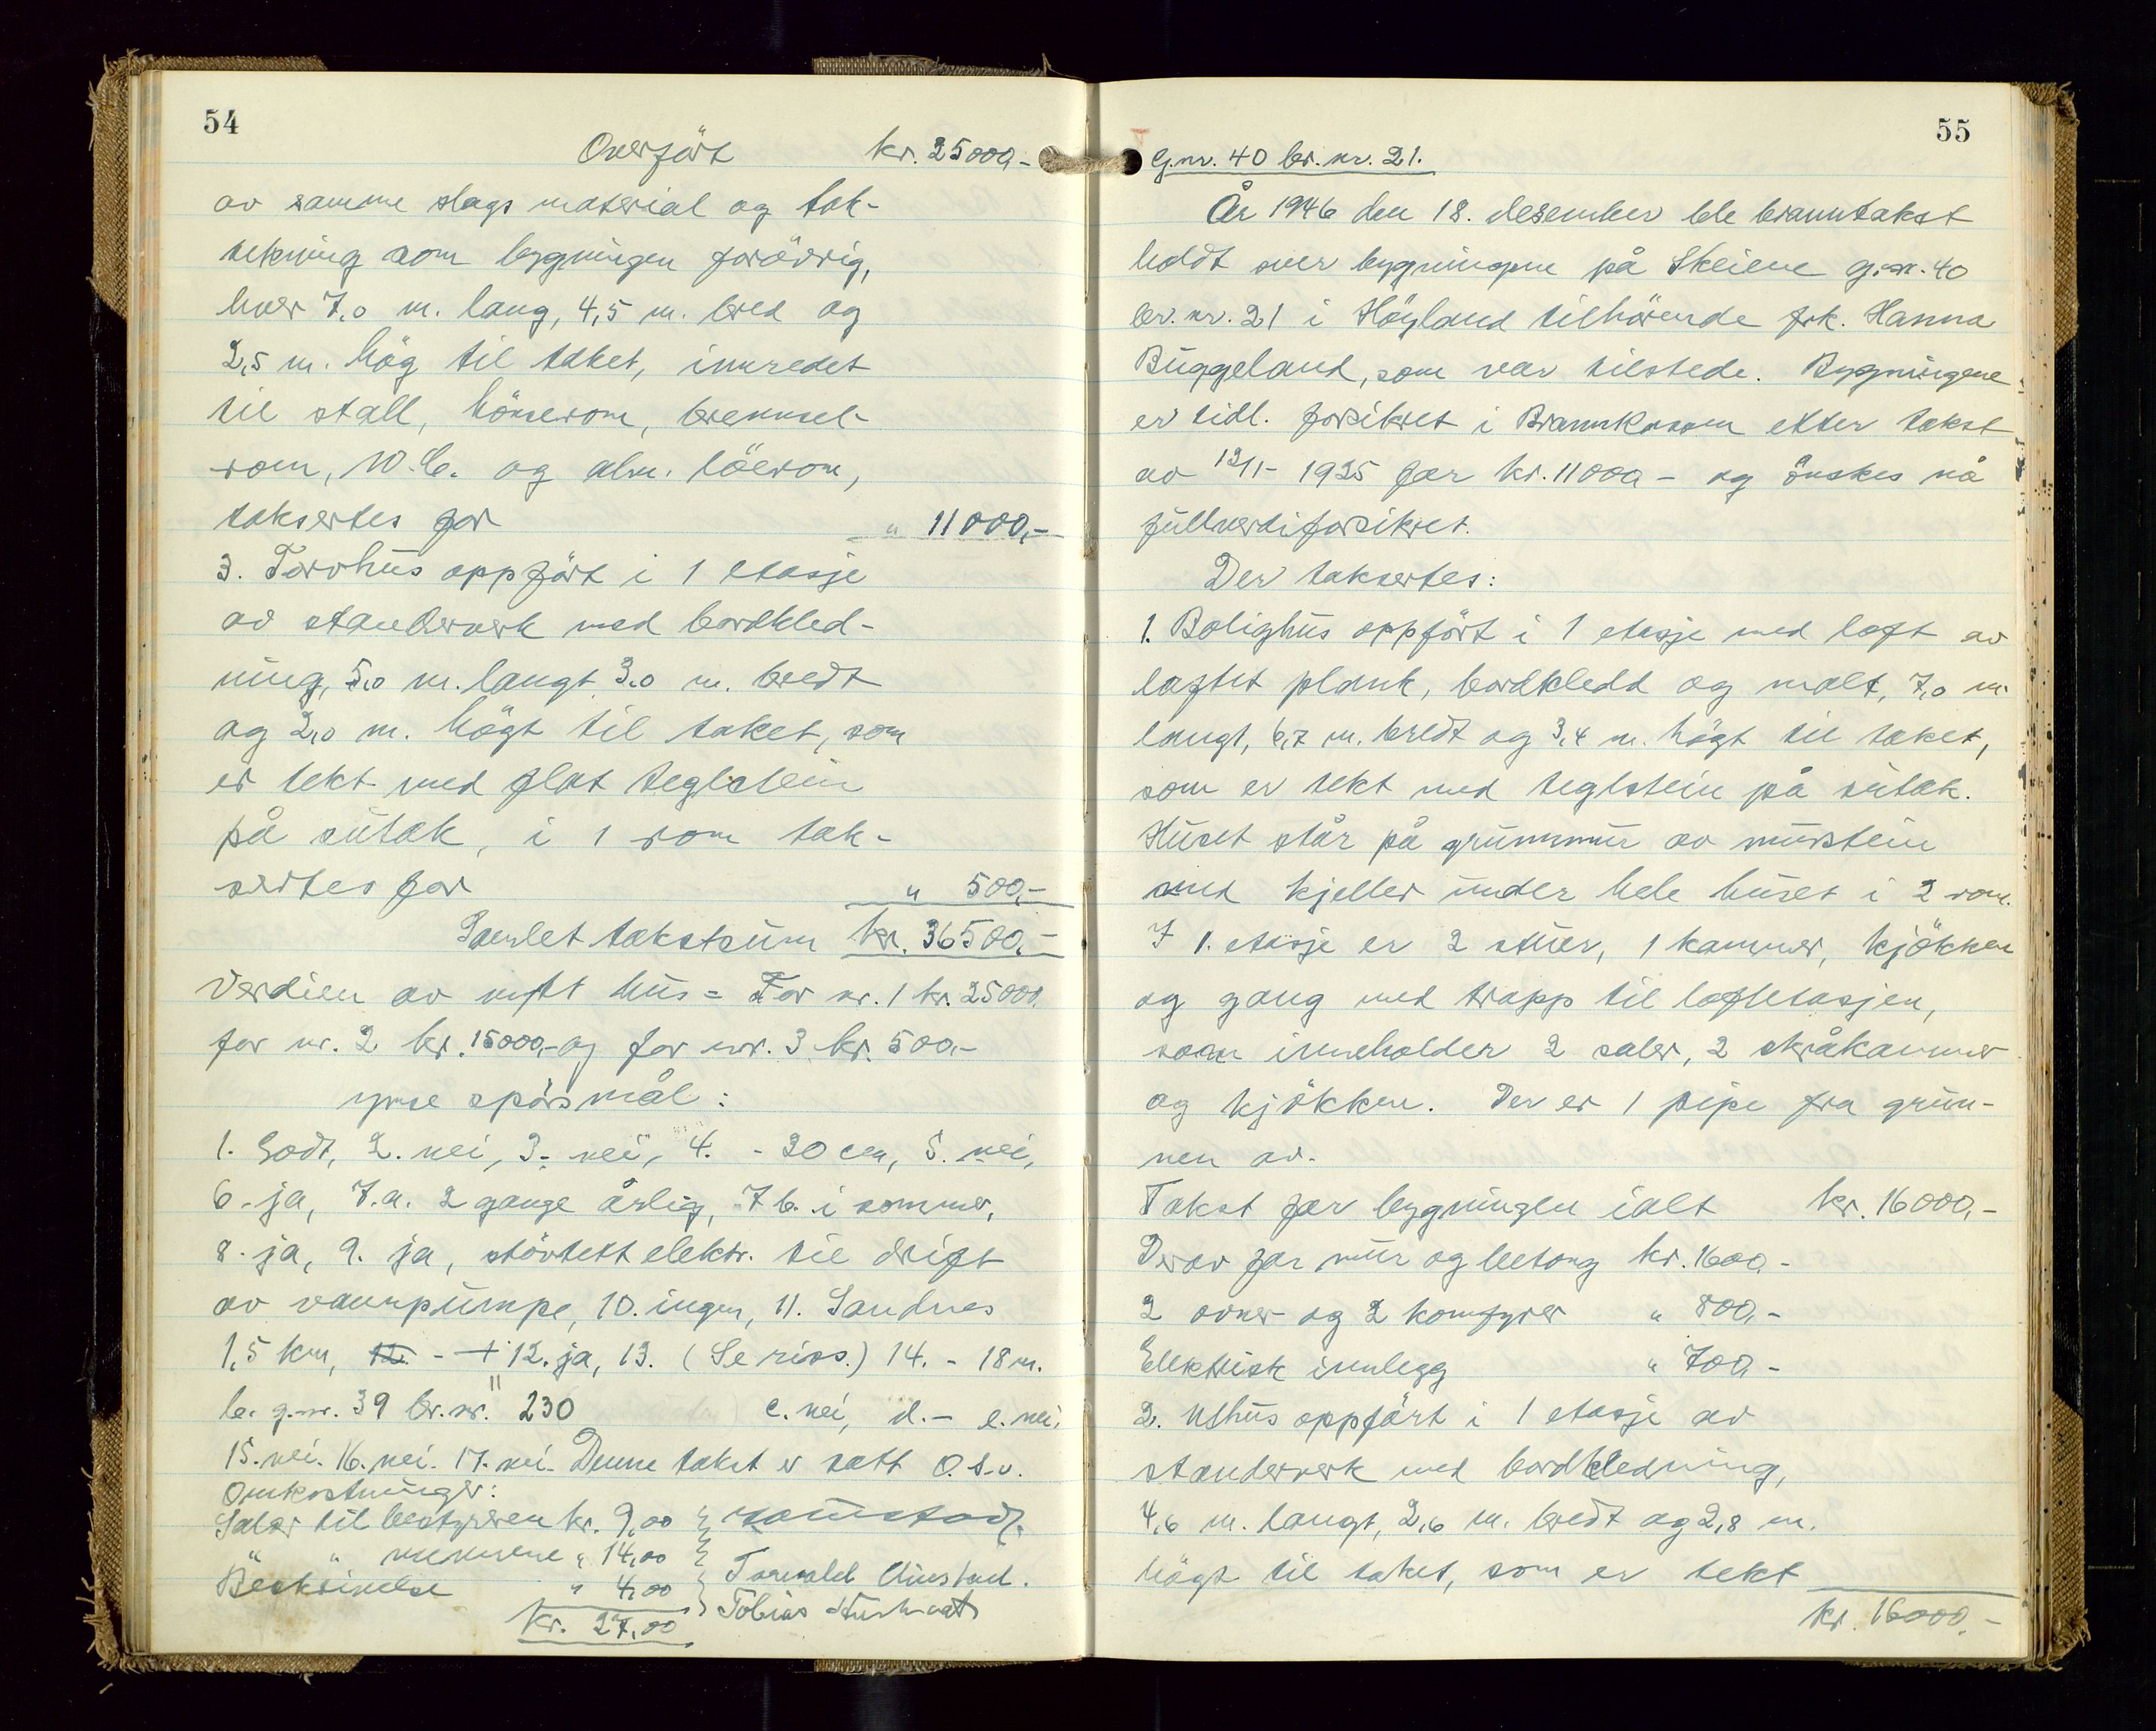 54
Overfört kr. 25000,-
av samme slags material og tak-
tekning som bygningen forövrig,
hver 7,0 m. lang, 4,5 m. bred og
2,5 m. hög til taket, innredet
til stall, hönserom, brennsel-
rom, W.C. og alm. löerom,
taksertes for " 11000,-
3. Torvhus oppfört i 1 etasje
av standerverk med bordkled-
ning, 5,0 m. langt 3,0 m. bredt
og 2,0 m. högt til taket, som
er tekt med flat teglstein
på sutak, i 1 rom tak-
sertes for " 500,-
Samlet takstsum kr. 36500,-
Verdien av nytt hus = For nr. 1 kr. 25000.
for nr. 2 kr. 15000,- og for nr. 3 kr. 500,-
ymse spörsmål:
1. Godt, 2. nei, 3. nei, 4. - 20 cm, 5. nei,
6. ja, 7.a. 2 gange årlig, 7 b. i sommer,
8. ja, 9. ja, stövtett elektr. til drift
av vannpumpe, 10. ingen, 11. Sandnes
1,5 km, 12. - + 12. ja, 13. (Se riss.) 14. - 18 m.
b. g.nr. 39 br.nr. 230 c. nei, d. - e. nei.
15. nei. 16. nei. 17. nei. Denne takst er satt o.s.v.
Omkostninger:
Salær til bestyreren kr. 9,00
" " mennene " 14,00
Beskrivelse " 4,00 Torvald
kr. 27,00 Tobias
55
G.nr. 40 br. nr. 21.
År 1946 den 18. desember ble branntakst
holdt over bygningene på Skeiene g.nr. 40
br. nr. 21 i Höyland tilhörende frk. Hanna
Buggeland, som var tilstede. Bygningene
er tidl. forsikret i Brannkassen etter takst
av 12/11- 1925 for kr. 11000,- og önskes nå
fullverdiforsikret.
Der taksertes:
1. Bolighus oppfört i 1 etasje med loft av
laftet plank, bordkledd og malt, 7,0 m
langt, 6,7 m. bredt og 3,4 m. högt til taket,
som er tekt med teglstein på sutak.
Huset står på grunnmur av murstein
med kjeller under hele huset i 2 rom.
I 1. etasje er 2 stuer, 1 kammer, kjökken
og gang med trapp til loftetasjen,
som inneholder 2 saler, 2 skråkammer
og kjökken. Der er 1 pipe fra grun-
nen av.
Takst for bygningen ialt kr. 16000,-
Derav for mur og betong kr. 1600,-
2 ovner og 2 komfyrer " 800,-
Elektrisk innlegg " 700,-
2. Uthus oppfört i 1 etasje av
standerverk med bordkledning,
4,6 m. langt, 2,6 m. bredt og 2,8 m.
högt til taket, som er tekt
kr. 16000,-